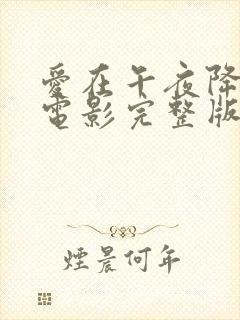 愛在午夜降
電影完整版
煙晨何年